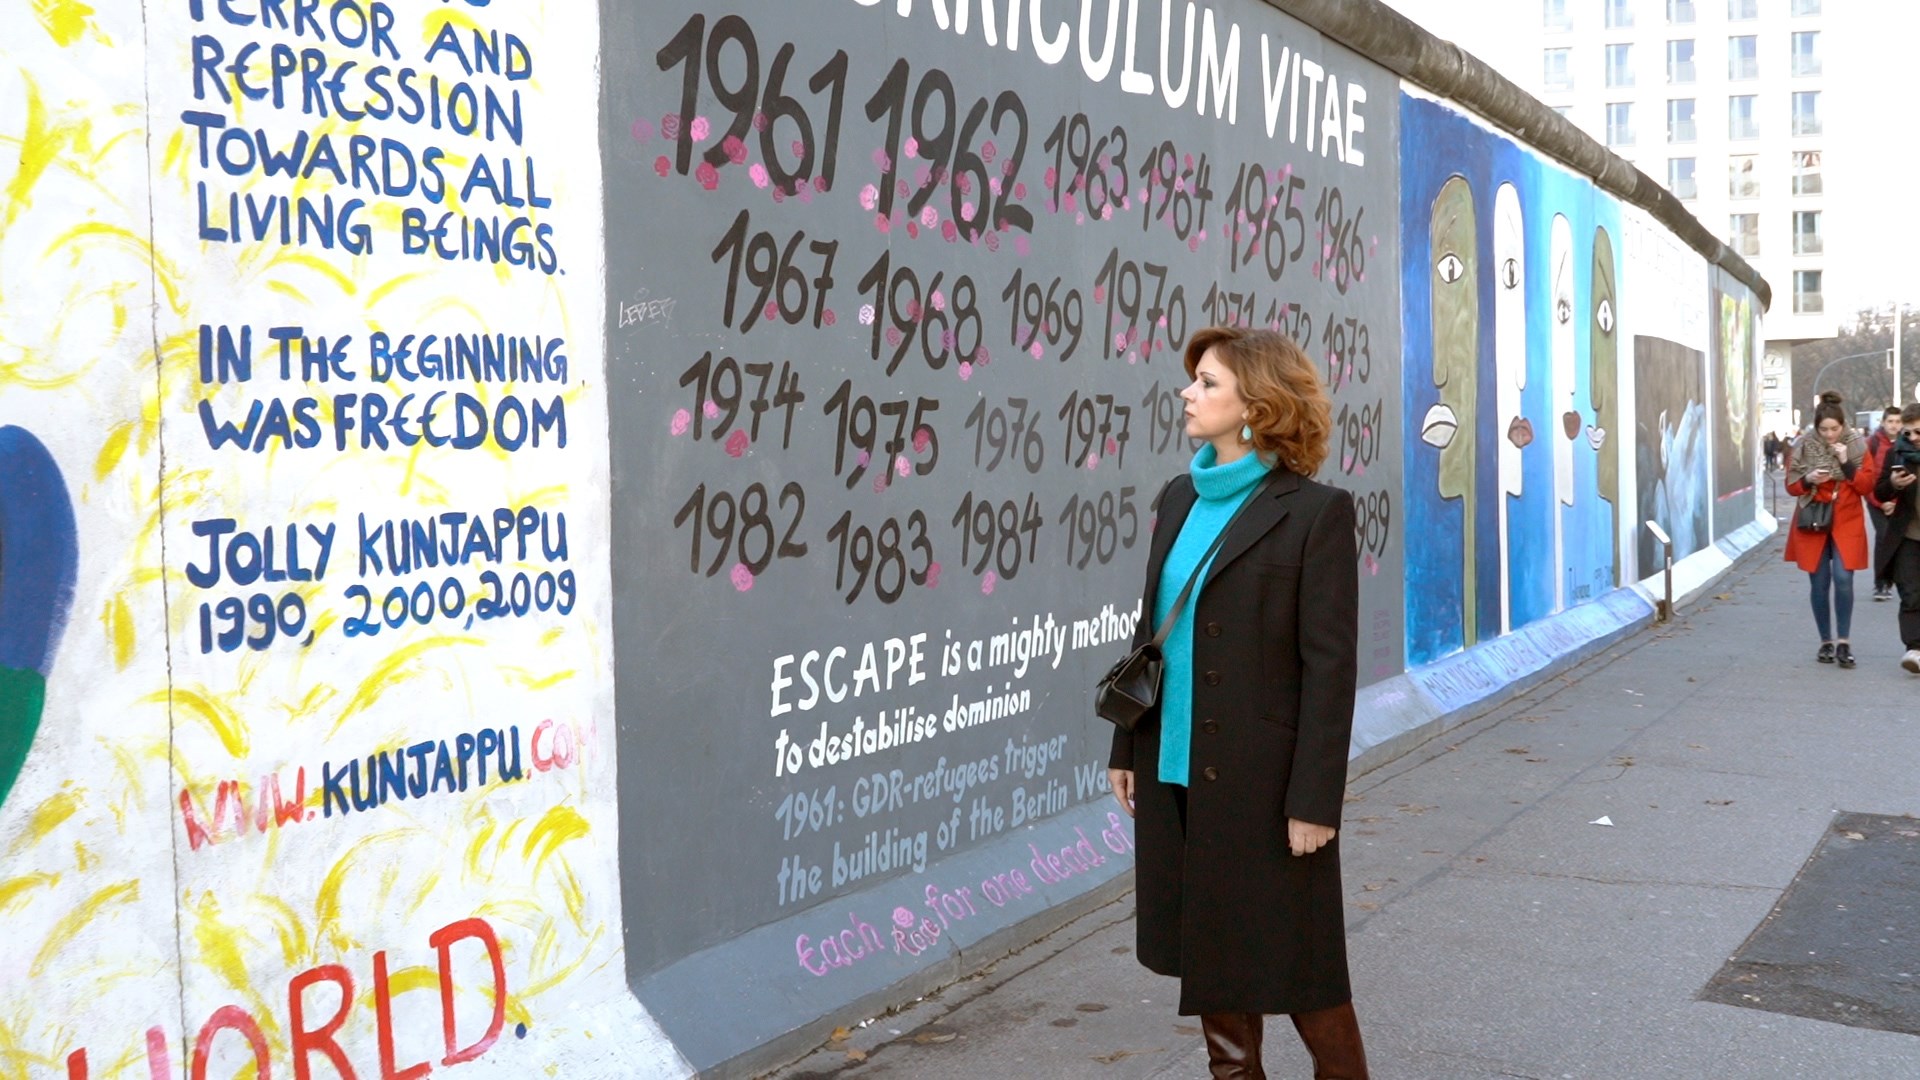 TERROR AND
REPRESSION
TOWARDS ALL
LIVING BEINGS.
IN THE BEGINNING
WAS FREEDOM
JOLLY KUNJAPPU
1990, 2000, 2009
WWW.KUNJAPPU.CO
WORLD.
VITAE
1961 1962 1963 1964 1965 1966
1967 1968 1969 1970 1971 1972 1973
1974 1975 1976 1977 1981
1982 1983 1984 1985
ESCAPE is a mighty method
to destabilise dominion
1961: GDR-refugees trigger
the building of the Berlin
Each Rose for one dead of
LEBER